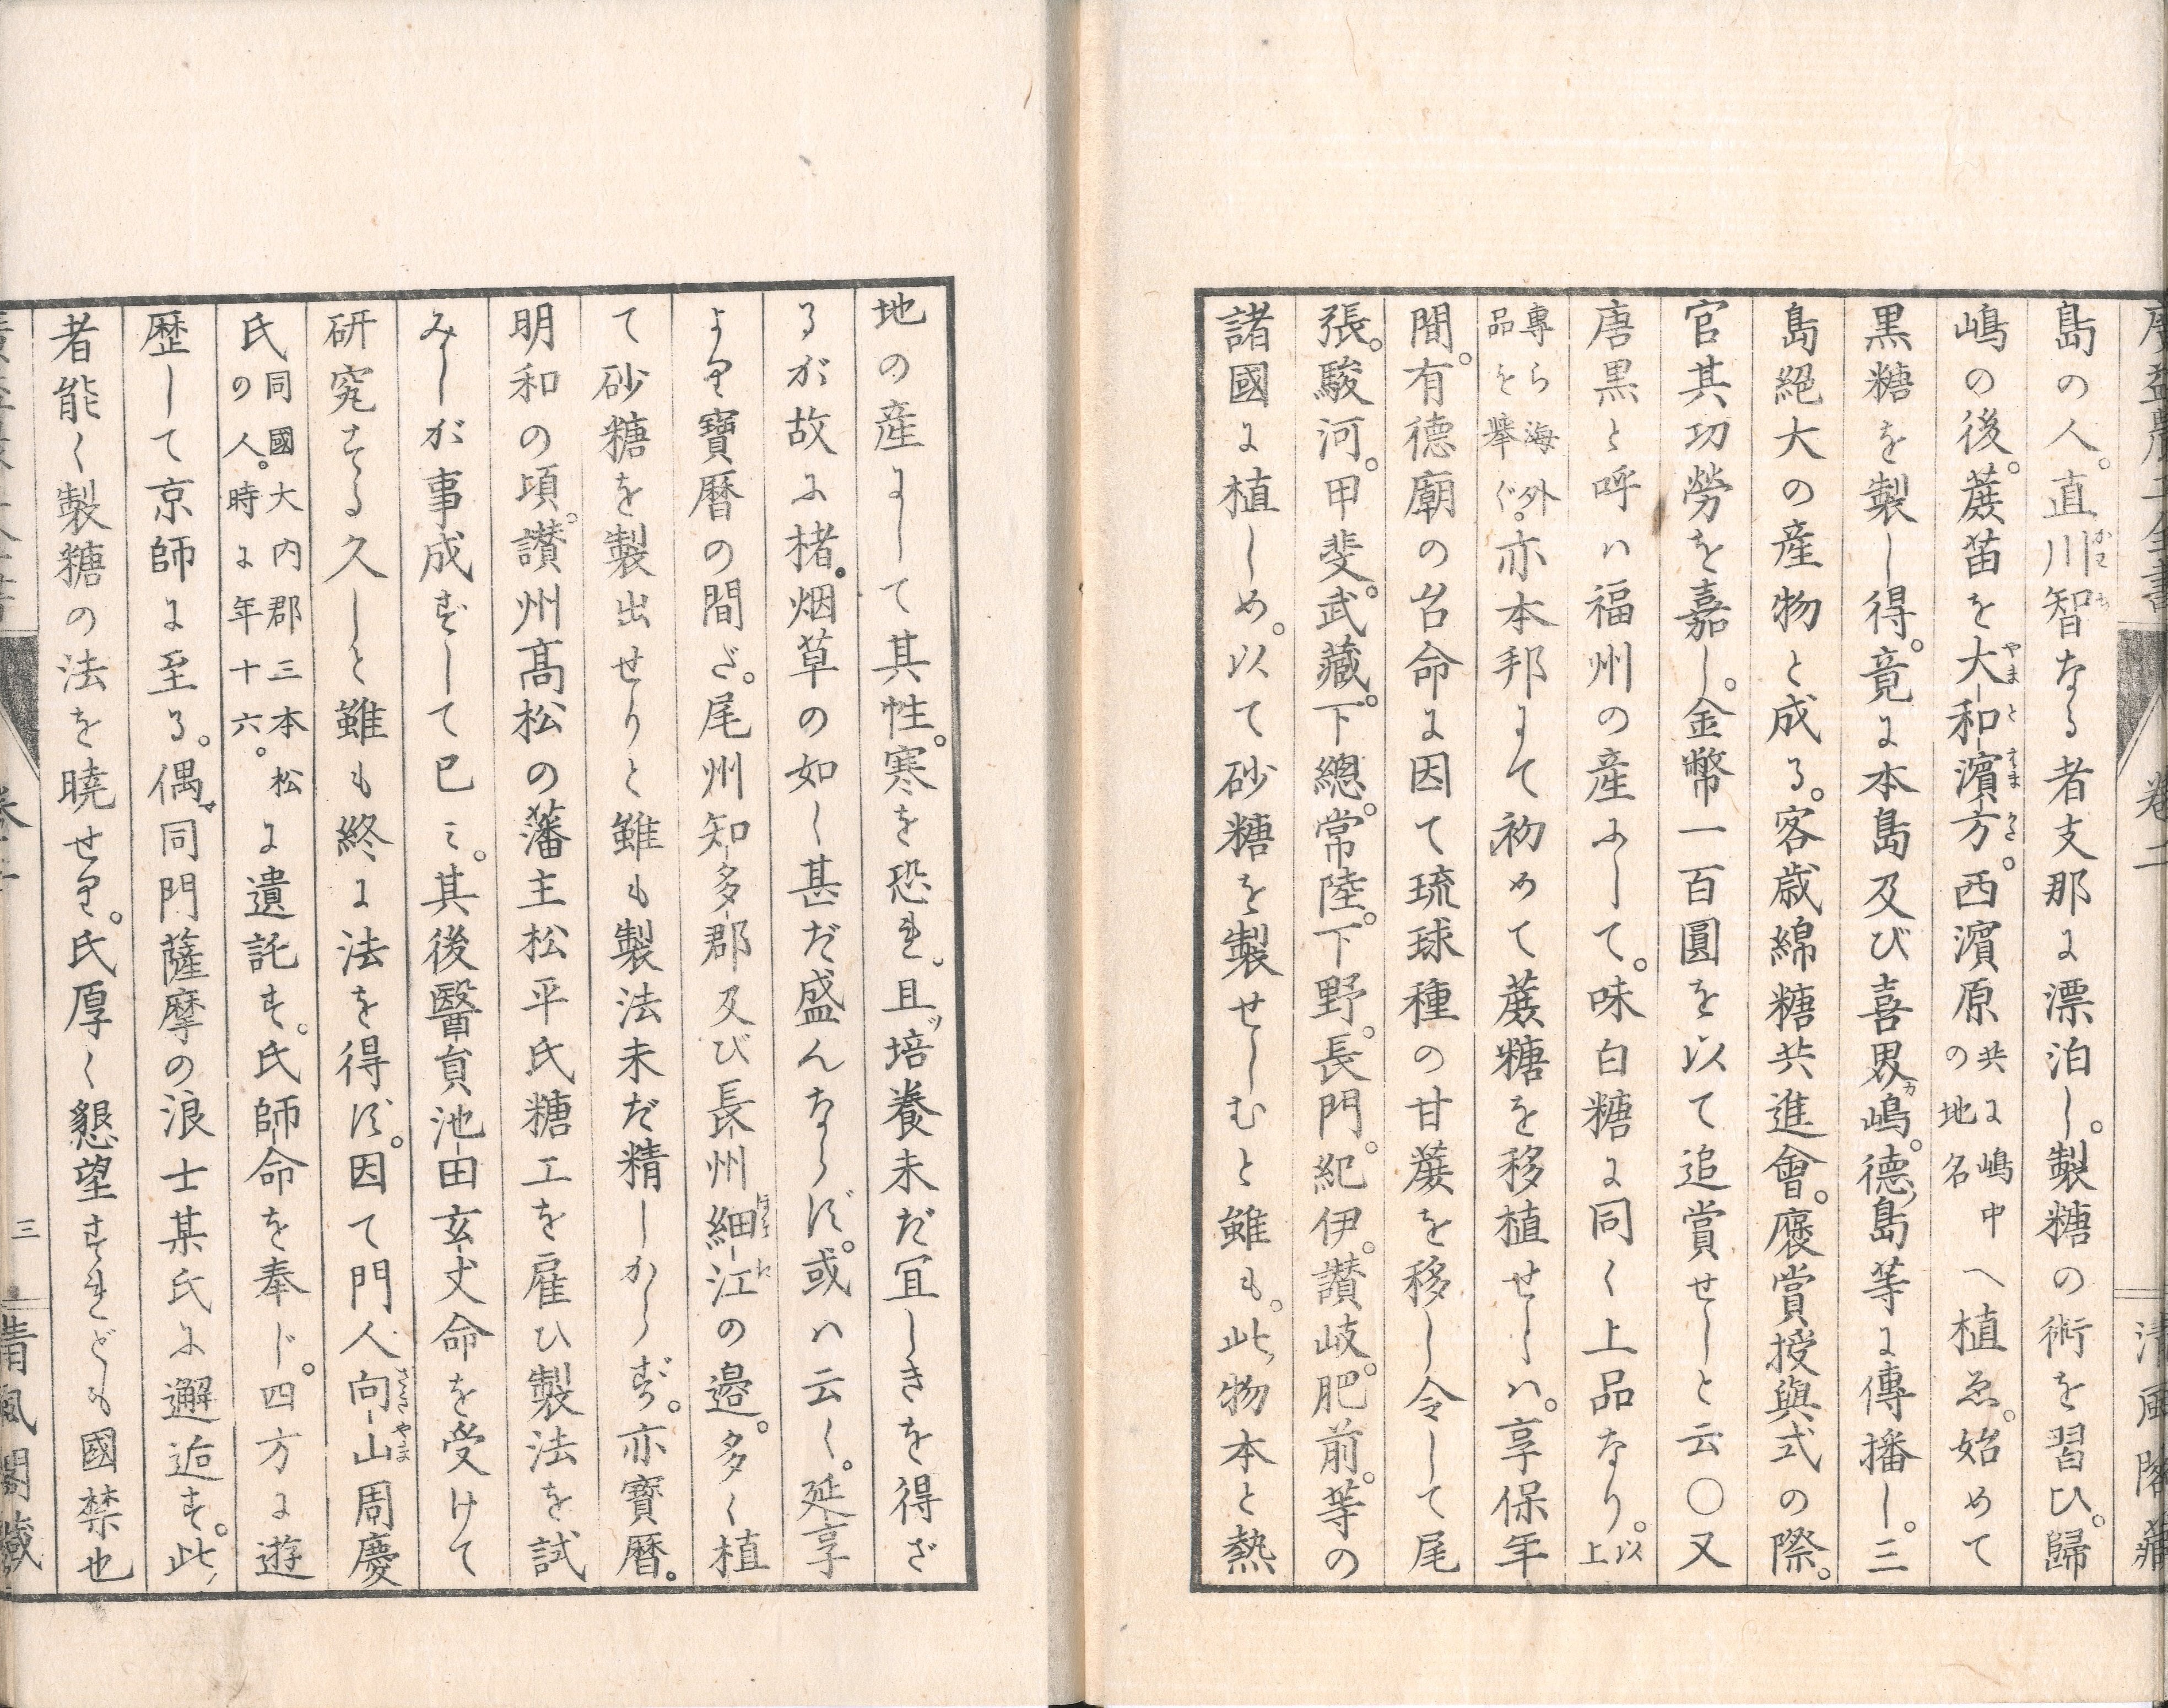 島の人。直川智なる者支那に漂泊し。製糖の術を習ひ。歸
嶋の後。蔗苗を大和濱方。西濱原共に嶋中の地名へ植ゑ。始めて
黒糖を製し得。竟に本島及び喜界嶋。德島等に傳播し。三
島絕大の産物と成る。客歳綿糖共進會。褒賞授與式の際。
官其功勞を嘉し。金幣一百圓を以て追賞せしと云〇又
唐黒と呼ハ福州の産にして。味白糖に同く上品なり。以上
專ら海外品を舉ぐ。亦本邦にて初めて蔗糖を移植せしハ。享保年
間。有德廟の台命に因て琉球種の甘蔗を移し令して尾
張。駿河。甲斐。武藏。下總。常陸。下野。長門。紀伊。讃岐。肥前。等の
諸國に植しめ。以て砂糖を製せしむと雖も。此物本と熱
地の産にして其性。寒を恐れ。且培養未だ宜しきを得ざ
るが故に楮。烟草の如く甚だ盛んならず。或ハ云く。延享
より寶暦の間ざ。尾州知多郡及び長州細江の邉。多く植
て砂糖を製出せりと雖も製法未だ精しからず。亦寶暦。
明和の頃。讃州髙松の藩主松平氏糖工を雇ひ製法を試
みしが事成ずして已ミ。其後醫員池田玄丈命を受けて
研究する久しと雖も終に法を得ず。因て門人向山周慶
氏同國大内郡三本松の人。時に年十六。に遺託す。氏師命を奉じ。四方に遊
歴して京師に至る。偶同門薩摩の浪士某氏に邂逅す。此
者能く製糖の法を曉せり。氏厚く懇望すれども國禁也
卷二
三
清風閣藏